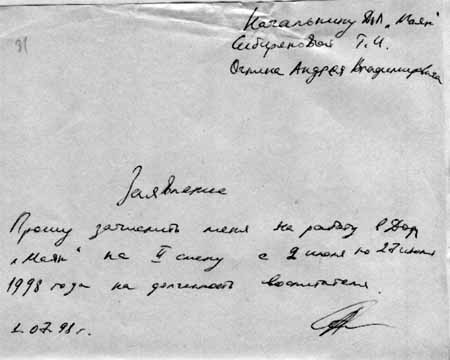 31
Начальнику ДОЛ „Маяк"
Сибиряковой Т.И.
Андрея Владимировича
Заявление
Прошу зачислить меня на работу в ДОЛ
„Маяк" на II смену с 2 июля по 27 июля
1998 года на должность воспитателя.
1.07.98 г.